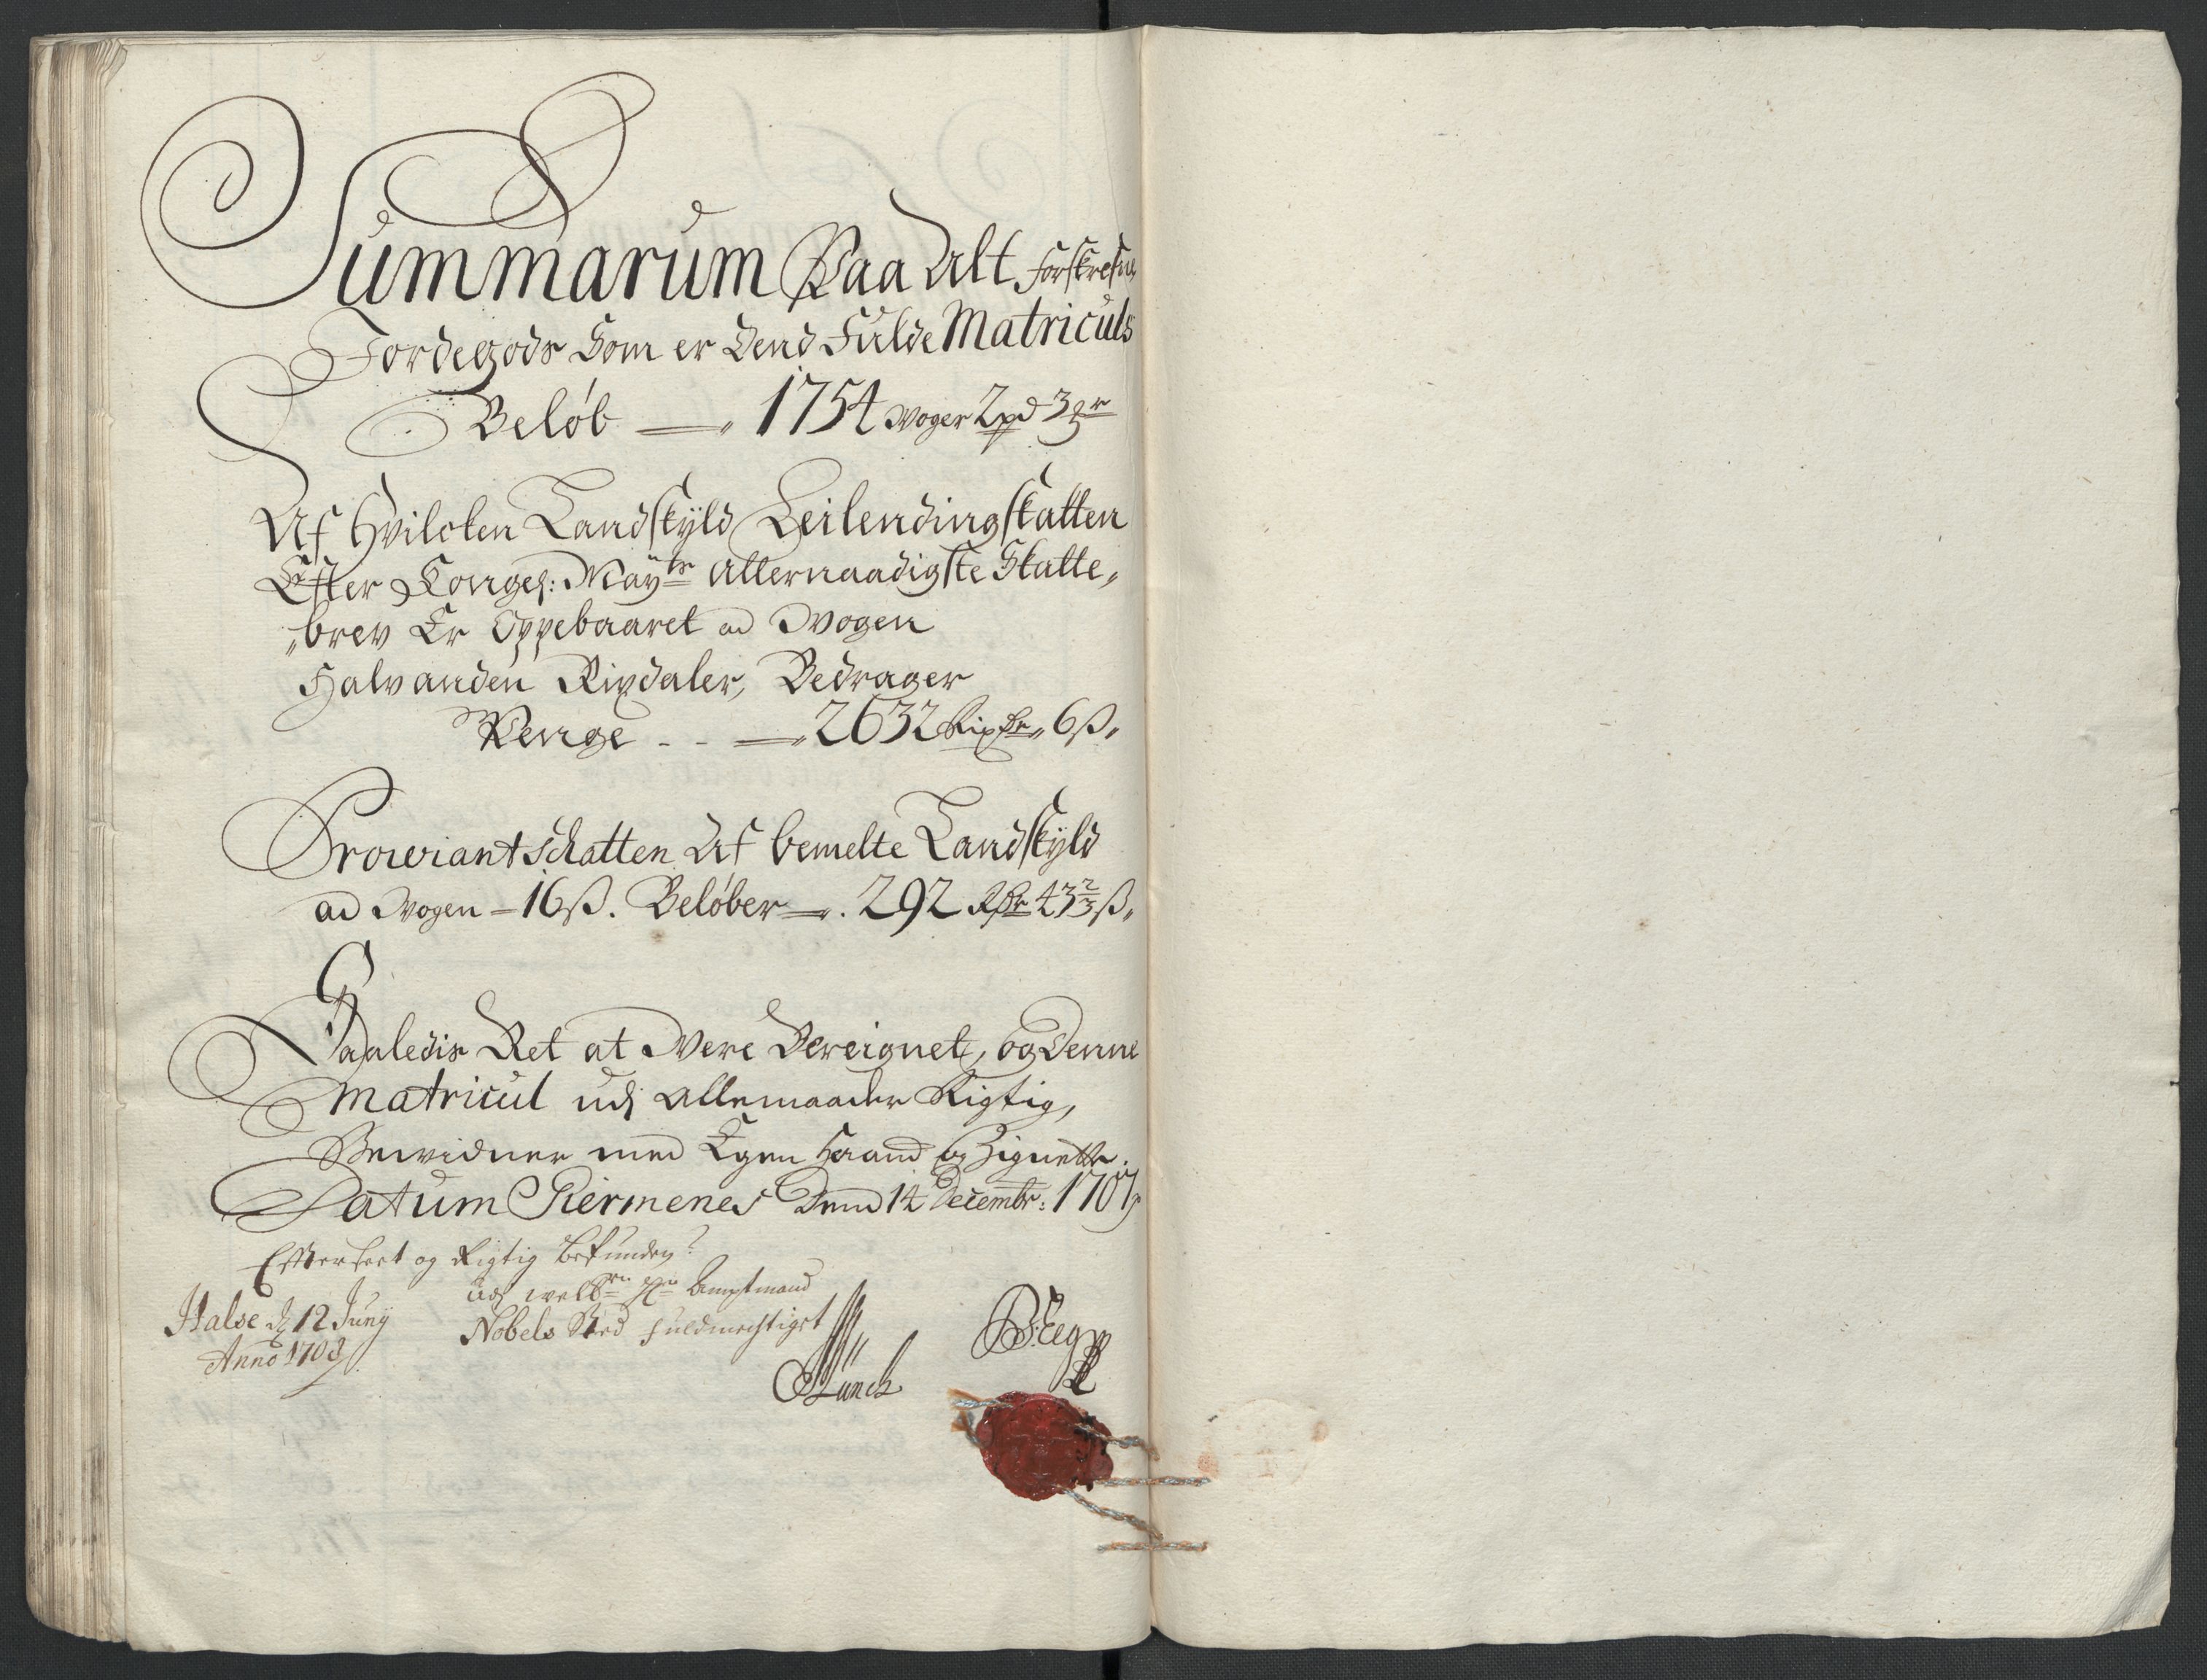 Summarum Paa Alt forskrefne
Jordegods Som er Dend Fulde Matriculs
Beløb — 1754 Woger 2 pd 3
Af Hvilcken Landskyld Leilendingskatten
Efter Kongel: Mayts Allernaadigste Skatte„
„brev Er Oppebaaret ad Wogen
Halvanden Rixdaler, Bedrager
Penge - - — 2632 Rixdr„ 6 ß„
Prowiantschatten Af bemelte Landskyld
ad Wogen — 16 ß. Beløber —. 292 Rdr 43 2/3 ß„
Saaledis Ret at Were Bereignet, og Denne
Matricul udj Allemaader Rigtig,
Bewidner med Egen Haand og Zignette.
Datum Giermenes Dend 14 Decembr: 1707
Effterseet og Rigtig befunden
Udj welb Hr Amptmand
Nobels Sted fuldmechtiget
Halse d 12 Junij
Anno 1708
Munch